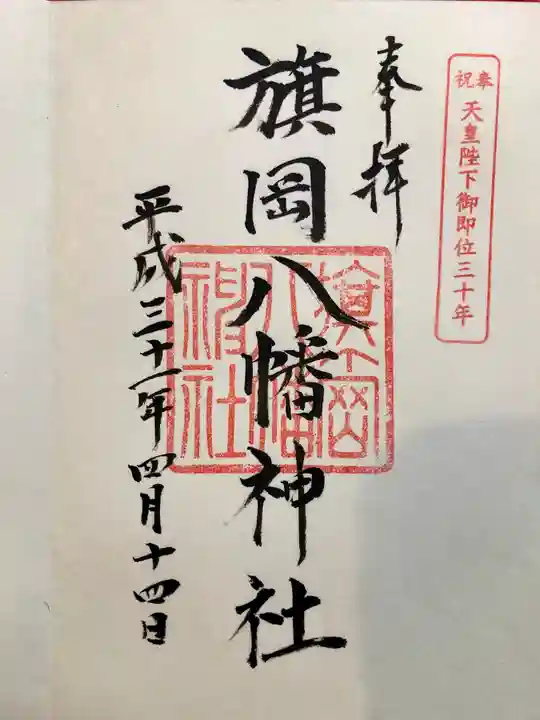 奉祝 天皇陛下御即位三十年
奉拝
旗岡八幡神社
旗岡八幡神社
平成三十一年四月十四日